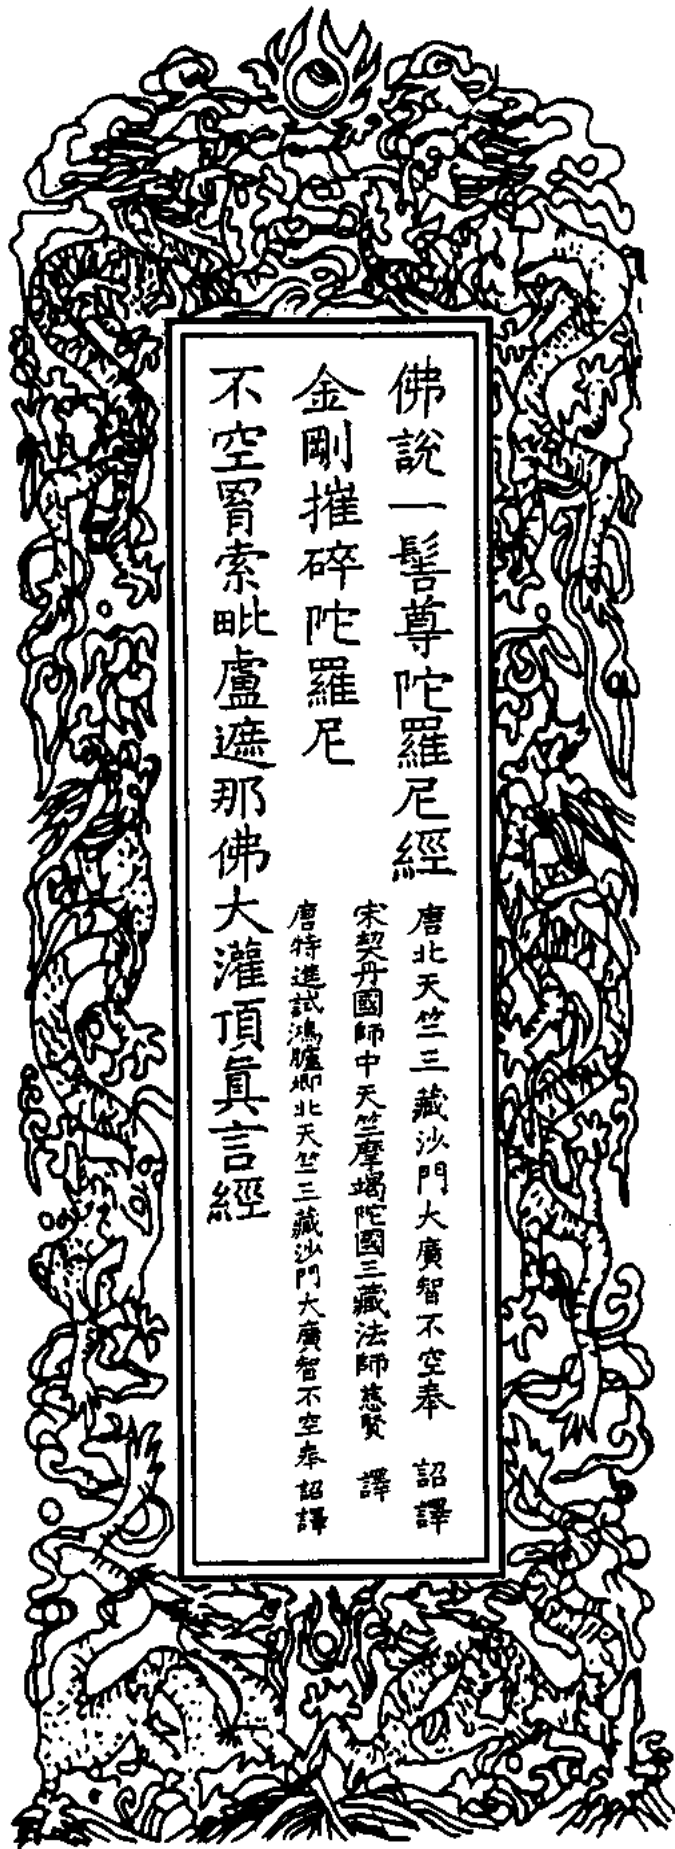 佛說一髻尊陀羅尼經
唐北天竺三藏沙門大廣智不空奉 詔譯
金剛摧碎陀羅尼
宋契丹國師中天竺摩竭陀國三藏法師慈賢 譯
不空罥索毗盧遮那佛大灌頂真言經
唐特進試鴻臚卿北天竺三藏沙門大廣智不空奉 詔譯